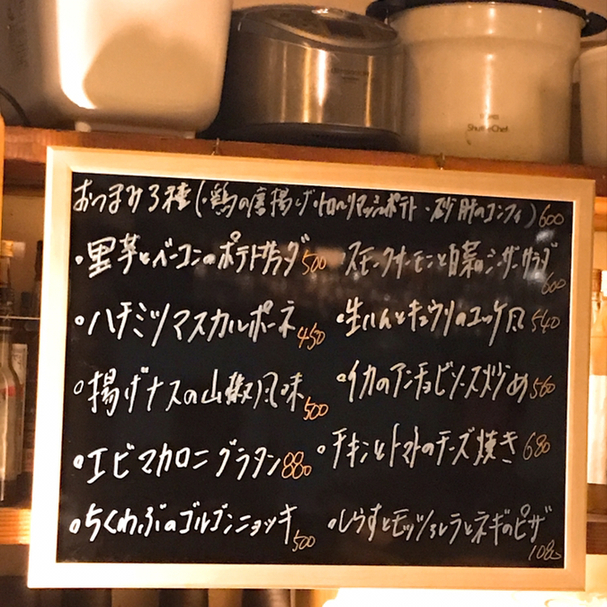 Shuttle Chef
おつまみ3種(・鶏の唐揚げ・トロ〜リマッシュポテト・砂肝のコンフィ)600
・里芋とベーコンのポテトサラダ500
・スモークサーモンと白菜のシーザーサラダ600
・ハチミツマスカルポーネ450
・生ハムとキュウリのユッケ風540
・揚げナスの山椒風味500
・イカのアンチョビソース炒め560
・エビマカロニグラタン880
・チキンとトマトのチーズ焼き680
・ちくわぶのゴルゴンニョッキ500
・しらすとモッツァレラとネギのピザ1080